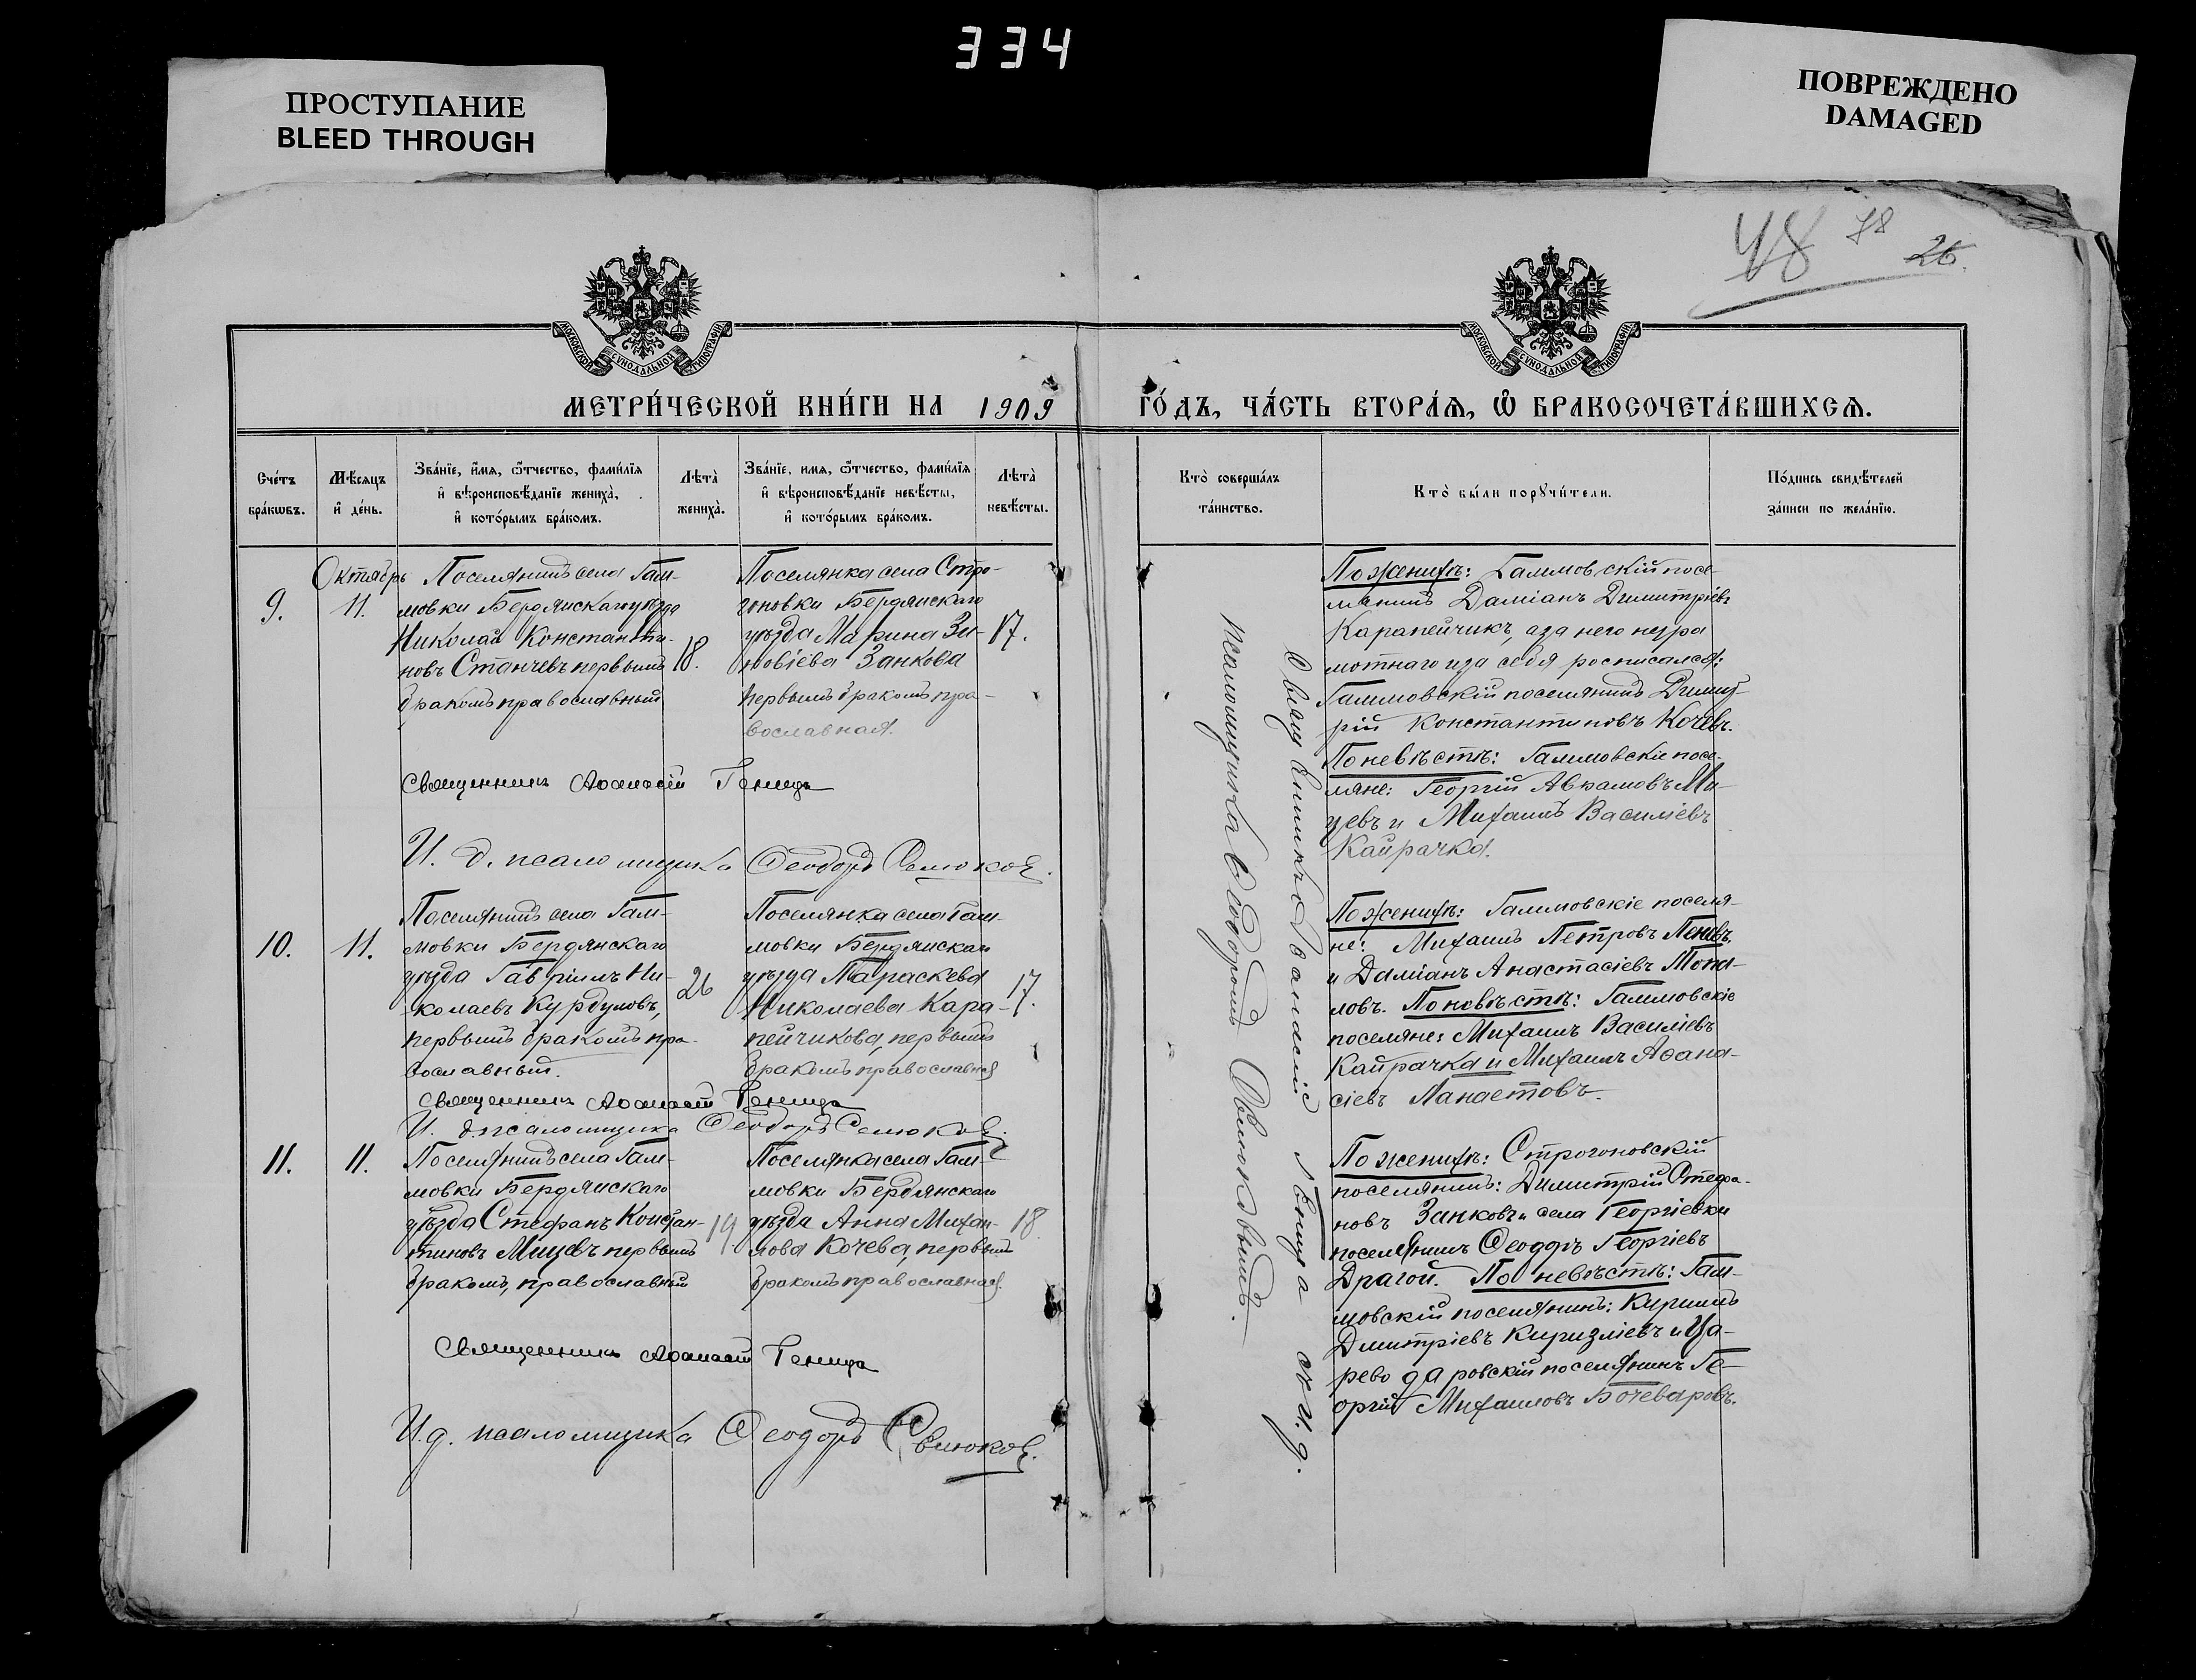 334
ПРОСТУПАНИЕ
BLEED THROUGH
ПОВРЕЖДЕНО
DAMAGED
48 78 26.
МОСКОВСКОЙ СѴНОДАЛЬНОЙ ТИПОГРАФІИ
МОСКОВСКОЙ СѴНОДАЛЬНОЙ ТИПОГРАФІИ
МЕТРИ́ЧЕСКОЙ КНИ́ГИ НА 1909
ГО́ДЪ, ЧА́СТЬ ВТОРА́Я, Ѽ БРАКОСОЧЕТА́ВШИХСЯ.
Сче́тъ
бра́кѡвъ.
Мѣ́сяцъ
и҆ де́нь.
Зва́нїе, и҆́мя, ѻ҆́тчество, фами́лїя
и҆ вѣроисповѣ́данїе жениха̀,
и҆ кото́рымъ бра́комъ.
Лѣта̀
жениха̀.
Зва́нїе, имя, ѻ҆́тчество, фами́лїя
и҆ вѣроисповѣ́данїе невѣ́сты,
и҆ кото́рымъ бра́комъ.
Лѣта̀
невѣ́сты.
Кто̀ соверша́лъ
та́инство.
Кто̀ бы́ли порꙋчи́тели.
По́дпись свидѣ́телей
за́писи по жела́нїю.
Октябрь
9.
11.
Поселянинъ села Гам-
мовки Бердянскаго уѣзда
Николай Константи-
новъ Станчевъ первымъ
бракомъ православный
18.
Поселянка села Стро-
гоновки Бердянскаго
уѣзда Марина Зи-
новіева Занкова
первымъ бракомъ пра-
вославная.
17.
Священникъ Аѳанасій Геница
И. д. псаломщика Ѳеодоръ Свлюковъ.
По женихѣ: Гаммовскій посе-
лянинъ Даміанъ Димитріевъ
Карапейчикъ, а за него негра
мотнаго и за себя росписался:
Гаммовскій поселянинъ Димит-
рій Константиновъ Кочевъ.
По невѣстѣ: Гаммовскіе посе-
ляне: Георгій Аврамовъ Ми-
цевъ и Михаилъ Василіевъ
Кайрачка.
10.
11.
Поселянинъ села Гам-
мовки Бердянскаго
уѣзда Гавріилъ Ни-
колаевъ Курдуловъ,
первымъ бракомъ пра-
вославный.
26
Поселянка села Гам-
мовки Бердянскаго
уѣзда Параскева
Николаева Кара-
пейчикова, первымъ
бракомъ православная
17.
Священникъ Аѳанасій Геница
И. д. псаломщика Ѳеодоръ Свлюковъ.
По женихѣ: Гаммовскіе поселя-
не: Михаилъ Петровъ Пеневъ
и Даміанъ Анастасіевъ Мона-
ловъ. По невѣстѣ: Гаммовскіе
поселяне: Михаилъ Василіевъ
Кайрачка и Михаилъ Аѳана-
сіевъ Панаетовъ.
11.
11.
Поселянинъ села Гам-
мовки Бердянскаго
уѣзда Стефанъ Констан-
тиновъ Мицевъ первымъ
бракомъ, православный
19.
Поселянка села Гам-
мовки Бердянскаго
уѣзда Анна Михаи-
лова Кочева, первымъ
бракомъ православная.
18.
Священникъ Аѳанасій Геница
И. д. псаломщика Ѳеодоръ Свлюковъ.
По женихѣ: Строгоновскій
поселянинъ: Димитрій Стефа-
новъ Занковъ и села Георгіевки
поселянинъ Ѳеодоръ Георгіевъ
Драгой. По невѣстѣ: Гам-
мовскій поселянинъ: Кириллъ
Дмитріевъ Киризліевъ и Ца-
реводаровскій поселянинъ Ге-
оргій Михаиловъ Бочеваровъ.
Священникъ Аѳанасій Геница съ и. д.
псаломщика Ѳеодоромъ Свлюковымъ.